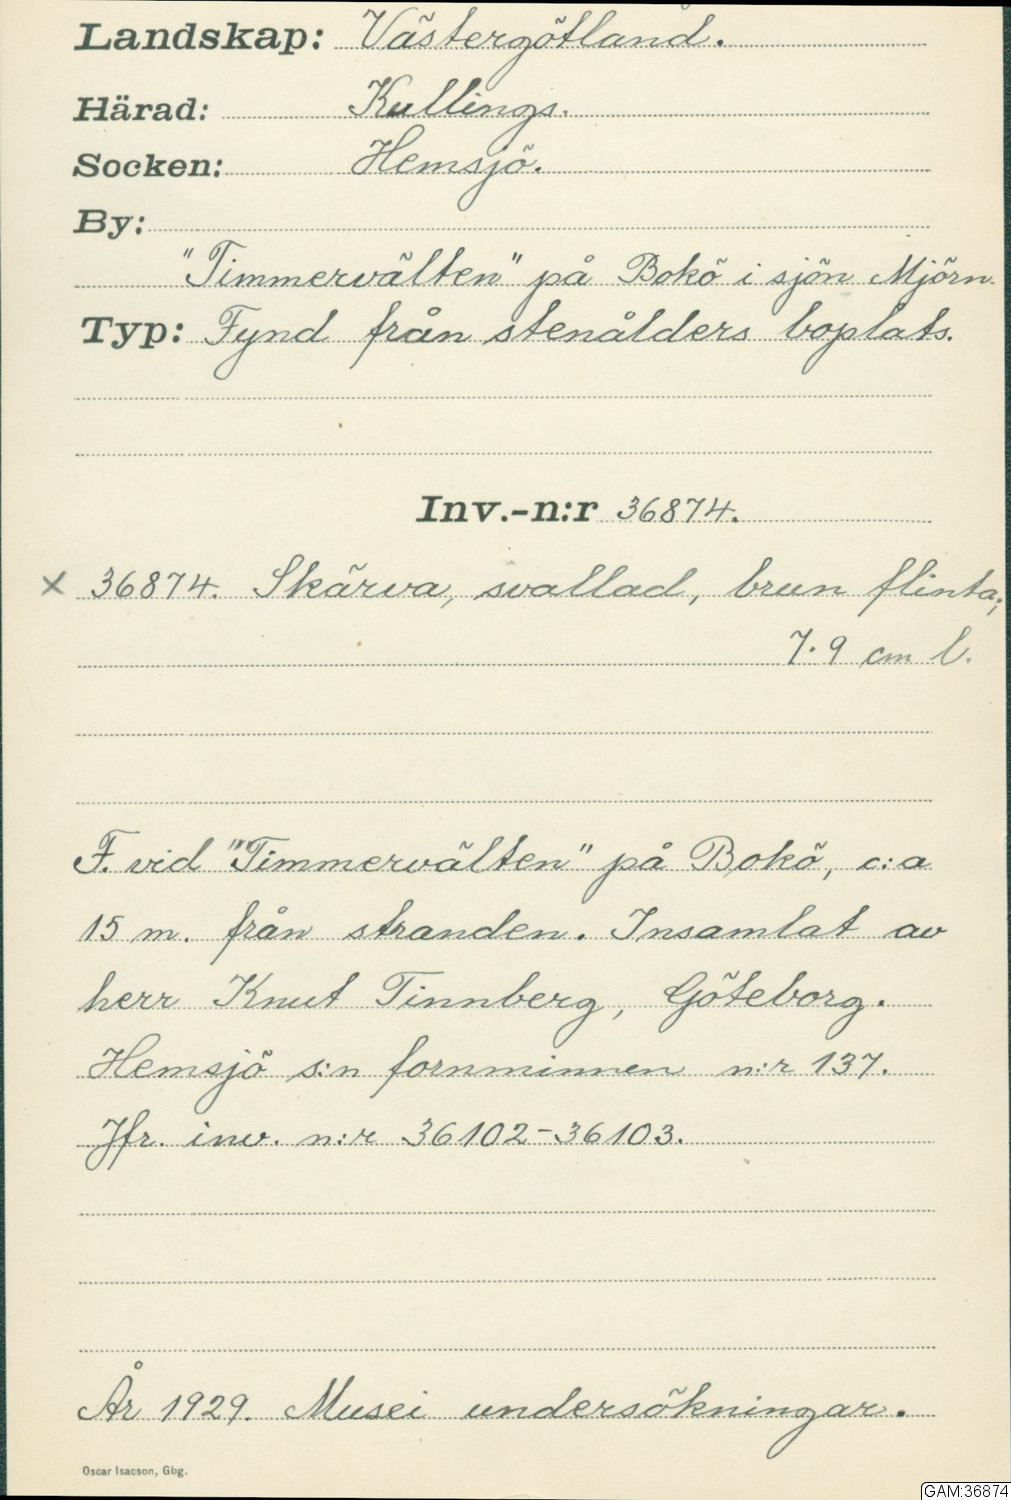 Landskap: Västergötland.
Härad: Kullings.
Socken: Hemsjö.
By:
"Timmervälten" på Bokö i sjön Mjörn.
Typ: Fynd från stenålders boplats.
Inv.-n:r 36874.
x 36874. Skärva, svallad, brun flinta;
7.9 cm l.
F. vid "Timmervälten" på Bokö, c:a
15 m. från stranden. Insamlat av
herr Knut Tinnberg, Göteborg.
Hemsjö s:n fornminnen n:r 137.
Jfr. inv. n:r 36102-36103.
År 1929. Musei undersökningar.
Oscar Isacson, Gbg.
GAM:36874